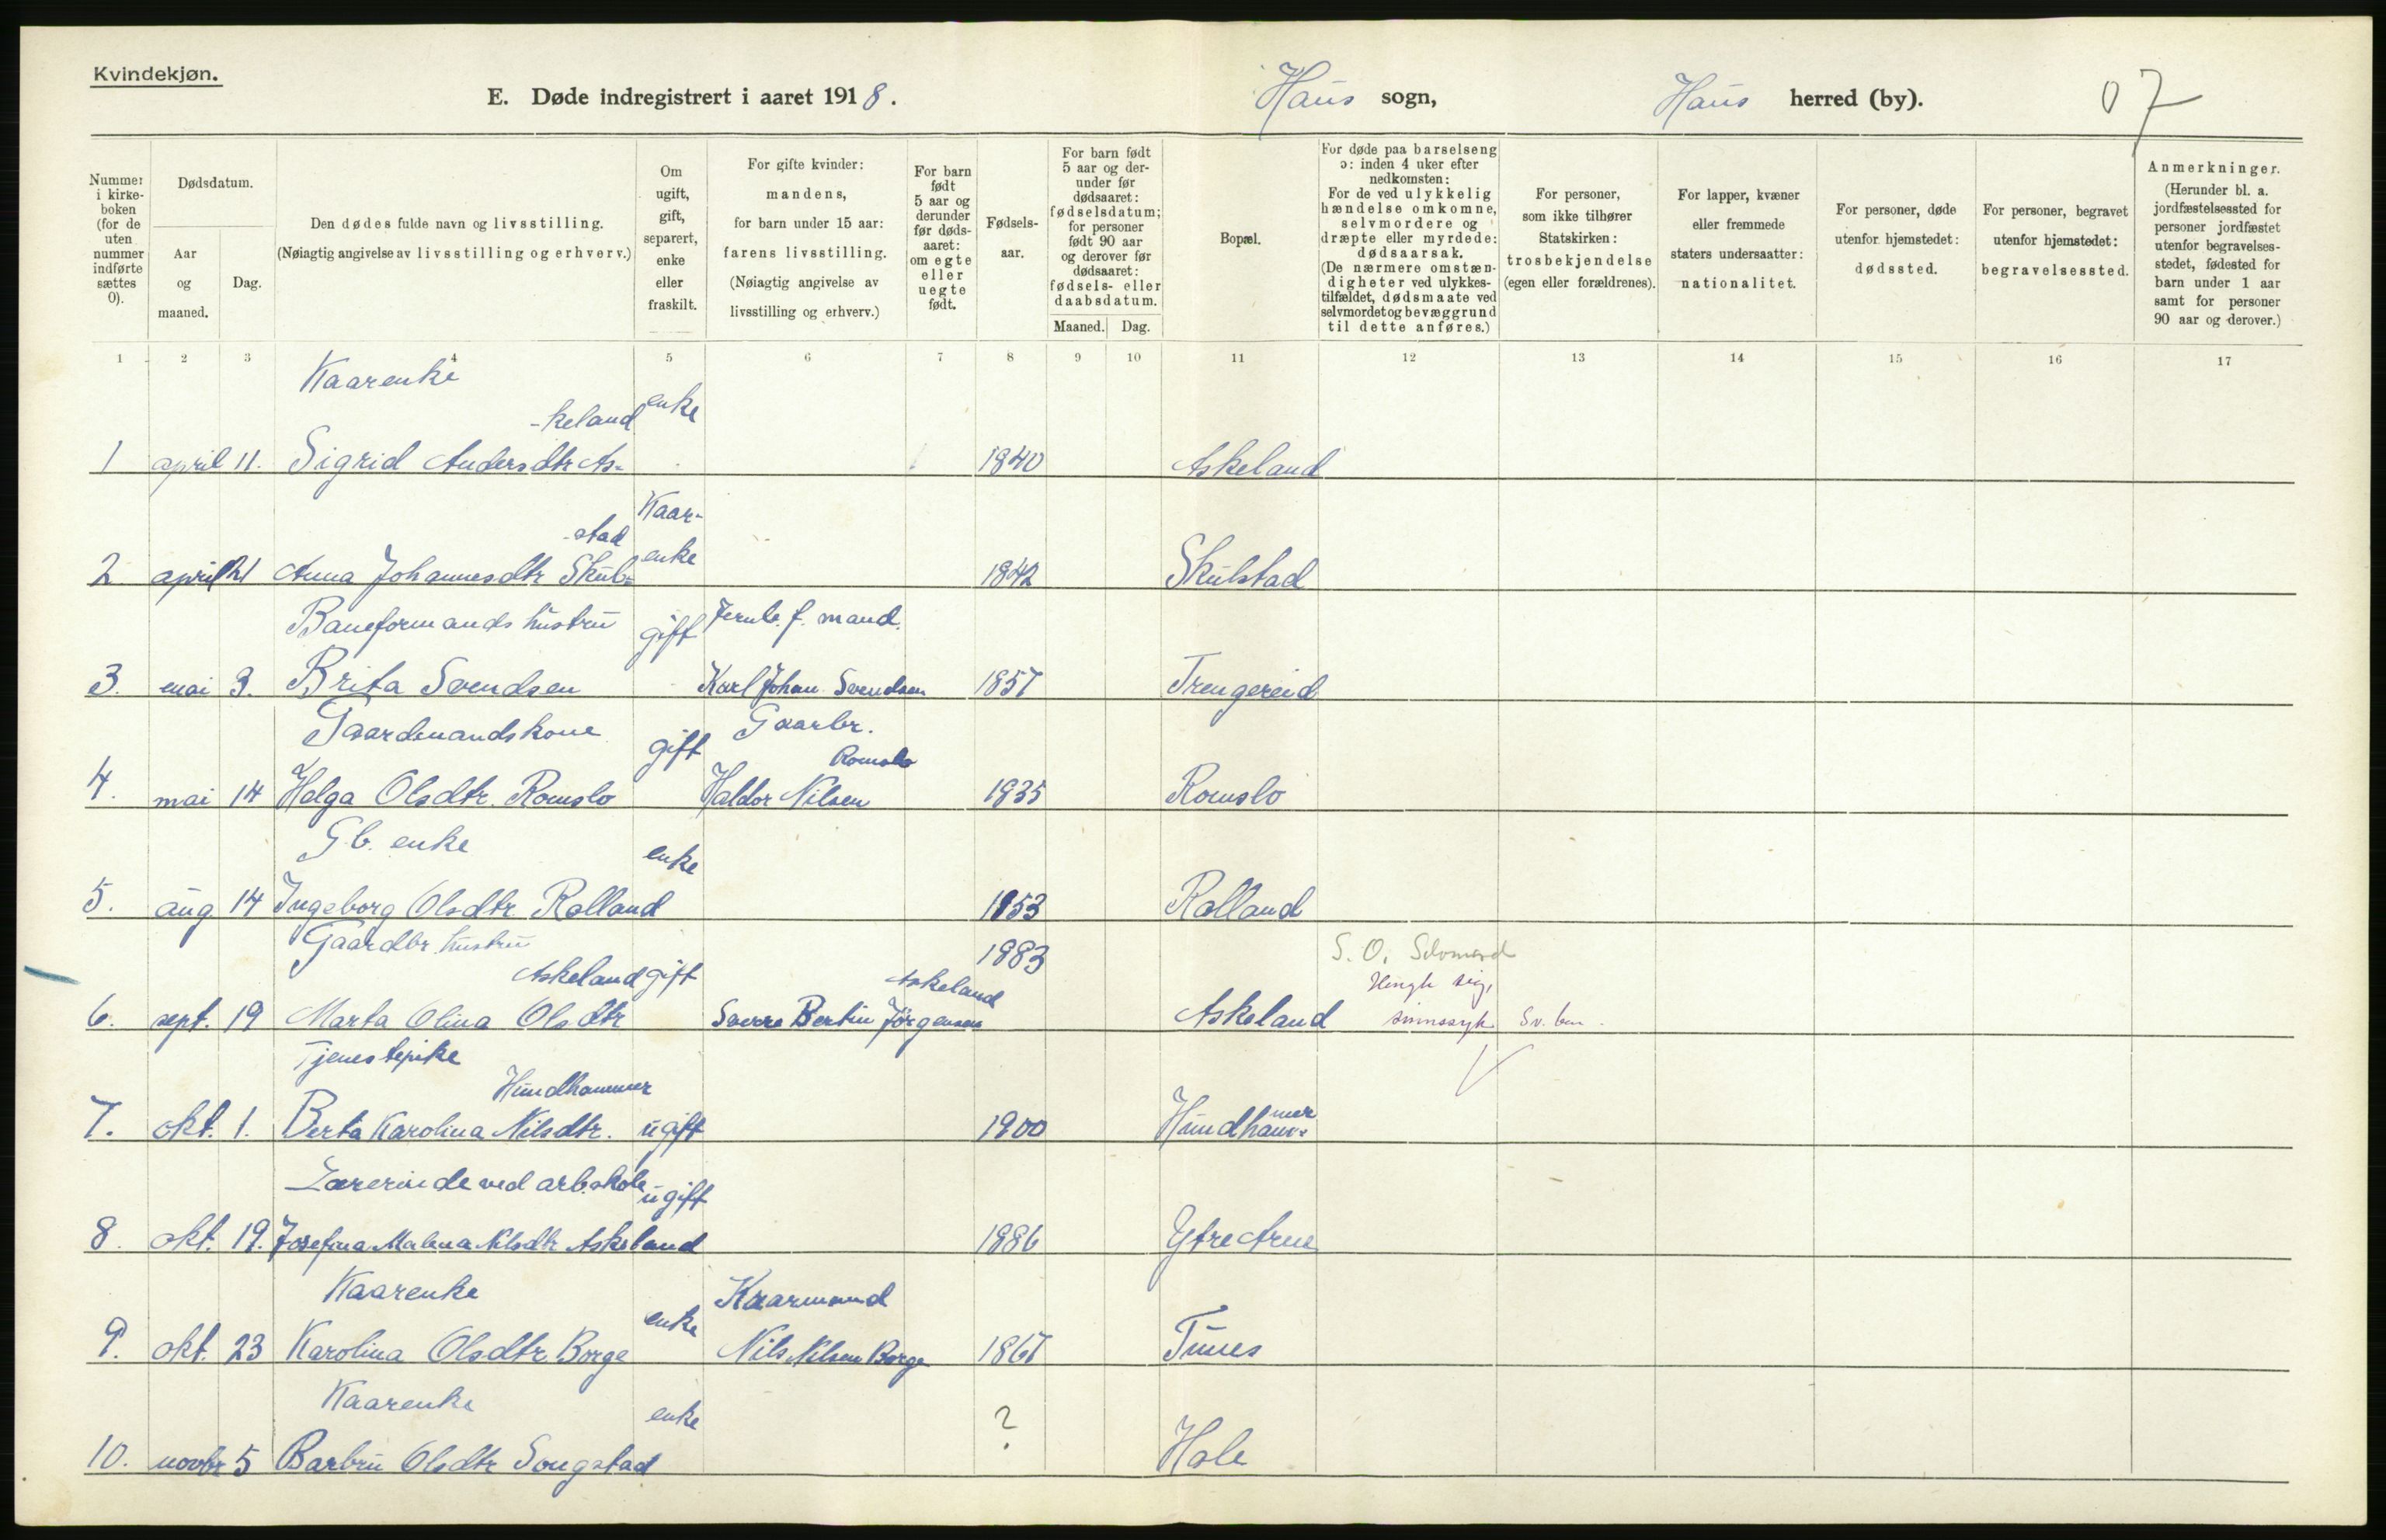 Kvindekjøn.
E. Døde indregistrert i aaret 1918.
Haus sogn,
Haus herred (by).
07
Nummer i kirkeboken (for de uten nummer indførte sættes 0).
Dødsdatum.
Aar og maaned.
Dag.
Den dødes fulde navn og livsstilling.
(Nøiagtig angivelse av livsstilling og erhverv.)
Om ugift, gift, separert, enke eller fraskilt.
For gifte kvinder: mandens, for barn under 15 aar: farens livsstilling. (Nøiagtig angivelse av livsstilling og erhverv.)
For barn født 5 aar og derunder før dødsaaret: om egte eller uegte født.
Fødselsaar.
For barn født 5 aar og derunder før dødsaaret: fødselsdatum; for personer født 90 aar og derover før dødsaaret: fødsels- eller daabsdatum.
Maaned. Dag.
Bopæl.
For døde paa barselseng ɔ: inden 4 uker efter nedkomsten: For de ved ulykkelig hændelse omkomne, selvmordere og dræpte eller myrdede: dødsaarsak. (De nærmere omstændigheter ved ulykkestilfældet, dødsmaate ved selvmordet og bevæggrund til dette anføres.)
For personer, som ikke tilhører Statskirken: trosbekjendelse (egen eller forældrenes).
For lapper, kvæner eller fremmede staters undersaatter: nationalitet.
For personer, døde utenfor hjemstedet: dødssted.
For personer, begravet utenfor hjemstedet: begravelsessted.
Anmerkninger. (Herunder bl. a. jordfæstelsessted for personer jordfæstet utenfor begravelsesstedet, fødested for barn under 1 aar samt for personer 90 aar og derover.)
1 2 3 4 5 6 7 8 9 10 11 12 13 14 15 16 17
Kaarenke
-keland enke
1 april 11. Sigrid Andersdtr As- 1840 Askeland
Kaar-
-stad enke
2 april 21 Anna Johannesdtr Skul- 1842 Skulstad
Baneformands hustru gift Jernb. f. mand.
3. mai 3. Brita Svendsen Karl Johan Svendsen 1857 Trengereid
Gaardmandskone gift Gaarbr.
Romslo
4. mai 14 Helga Olsdtr. Romslo Haldor Nilsen 1835 Romslo
G.b. enke enke
5. aug 14 Ingeborg Olsdtr. Rolland 1853 Rolland
Gaardbr. hustru 1883 S. O. Selvmord
Askeland gift Askeland Hengt sig,
6. sept. 19 Marta Olina Olsdtr Sverre Bertin Jörgensen Askeland sinnssyk Sv.
Tjenestepike
Hundhammer
7. okt. 1. Berta Karolina Nilsdtr. ugift 1900 Hundham-mer
Lærerinde ved arb.skole ugift
8. okt. 19. Josefina Malena Nilsdtr Askeland 1886 Ytre Arne
Kaarenke enke Kaarmand
9. okt. 23 Karolina Olsdtr. Borge Nils Nilsen Borge 1867 Tunes
Kaarenke enke ?
10. novbr 5 Barbru Olsdtr Songstad Hole